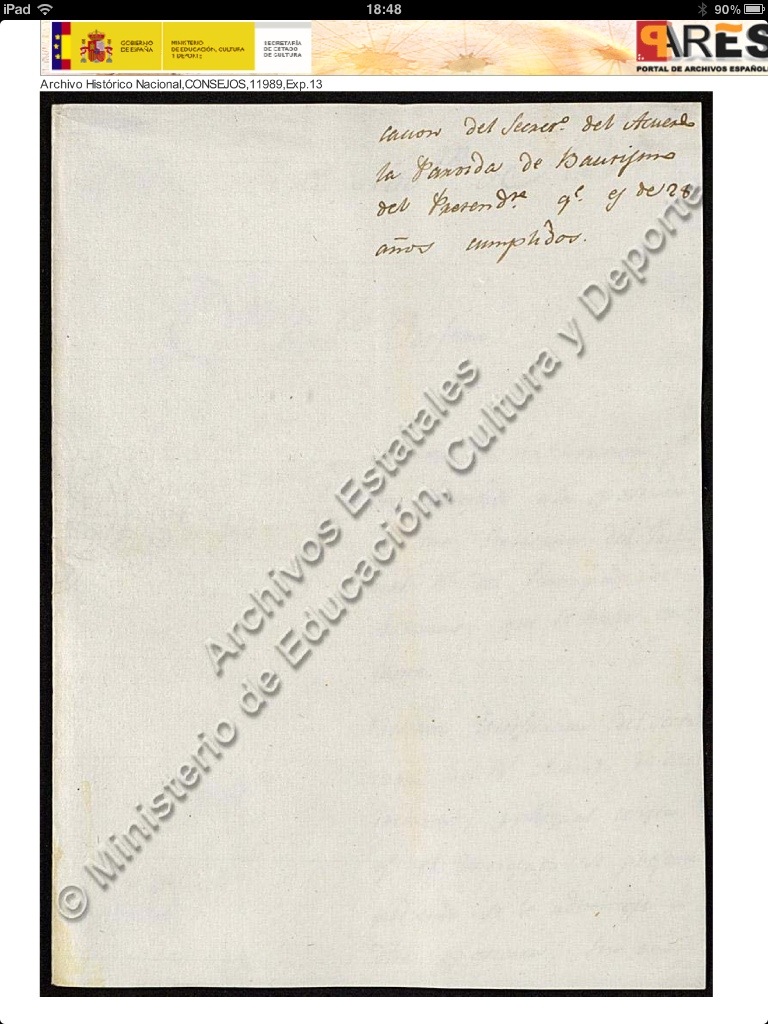 iPad 18:48 90%
GOBIERNO DE ESPAÑA
MINISTERIO DE EDUCACIÓN, CULTURA Y DEPORTE
SECRETARÍA DE ESTADO DE CULTURA
PARES
PORTAL DE ARCHIVOS ESPAÑOL
Archivo Histórico Nacional,CONSEJOS,11989,Exp.13
cacion del Secret.o del Acuerdo
la Partida de Bautismo
del Pretend.te q.e es de 28
años cumplidos.
Archivos Estatales
© Ministerio de Educación, Cultura y Deporte